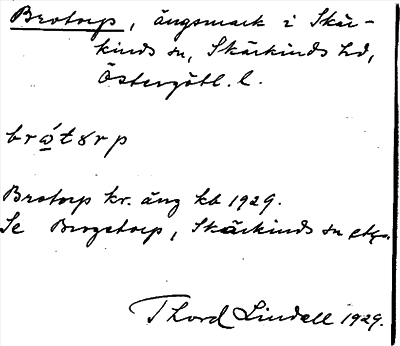 Brotorp, ängsmark i Skär-
kinds sn, Skärkinds hd,
Östergötl. l.
brώtørp
Brotorp kr. äng kb 1929.
Se Borgetorp, Skärkinds sn
Thord Lindell 1929.